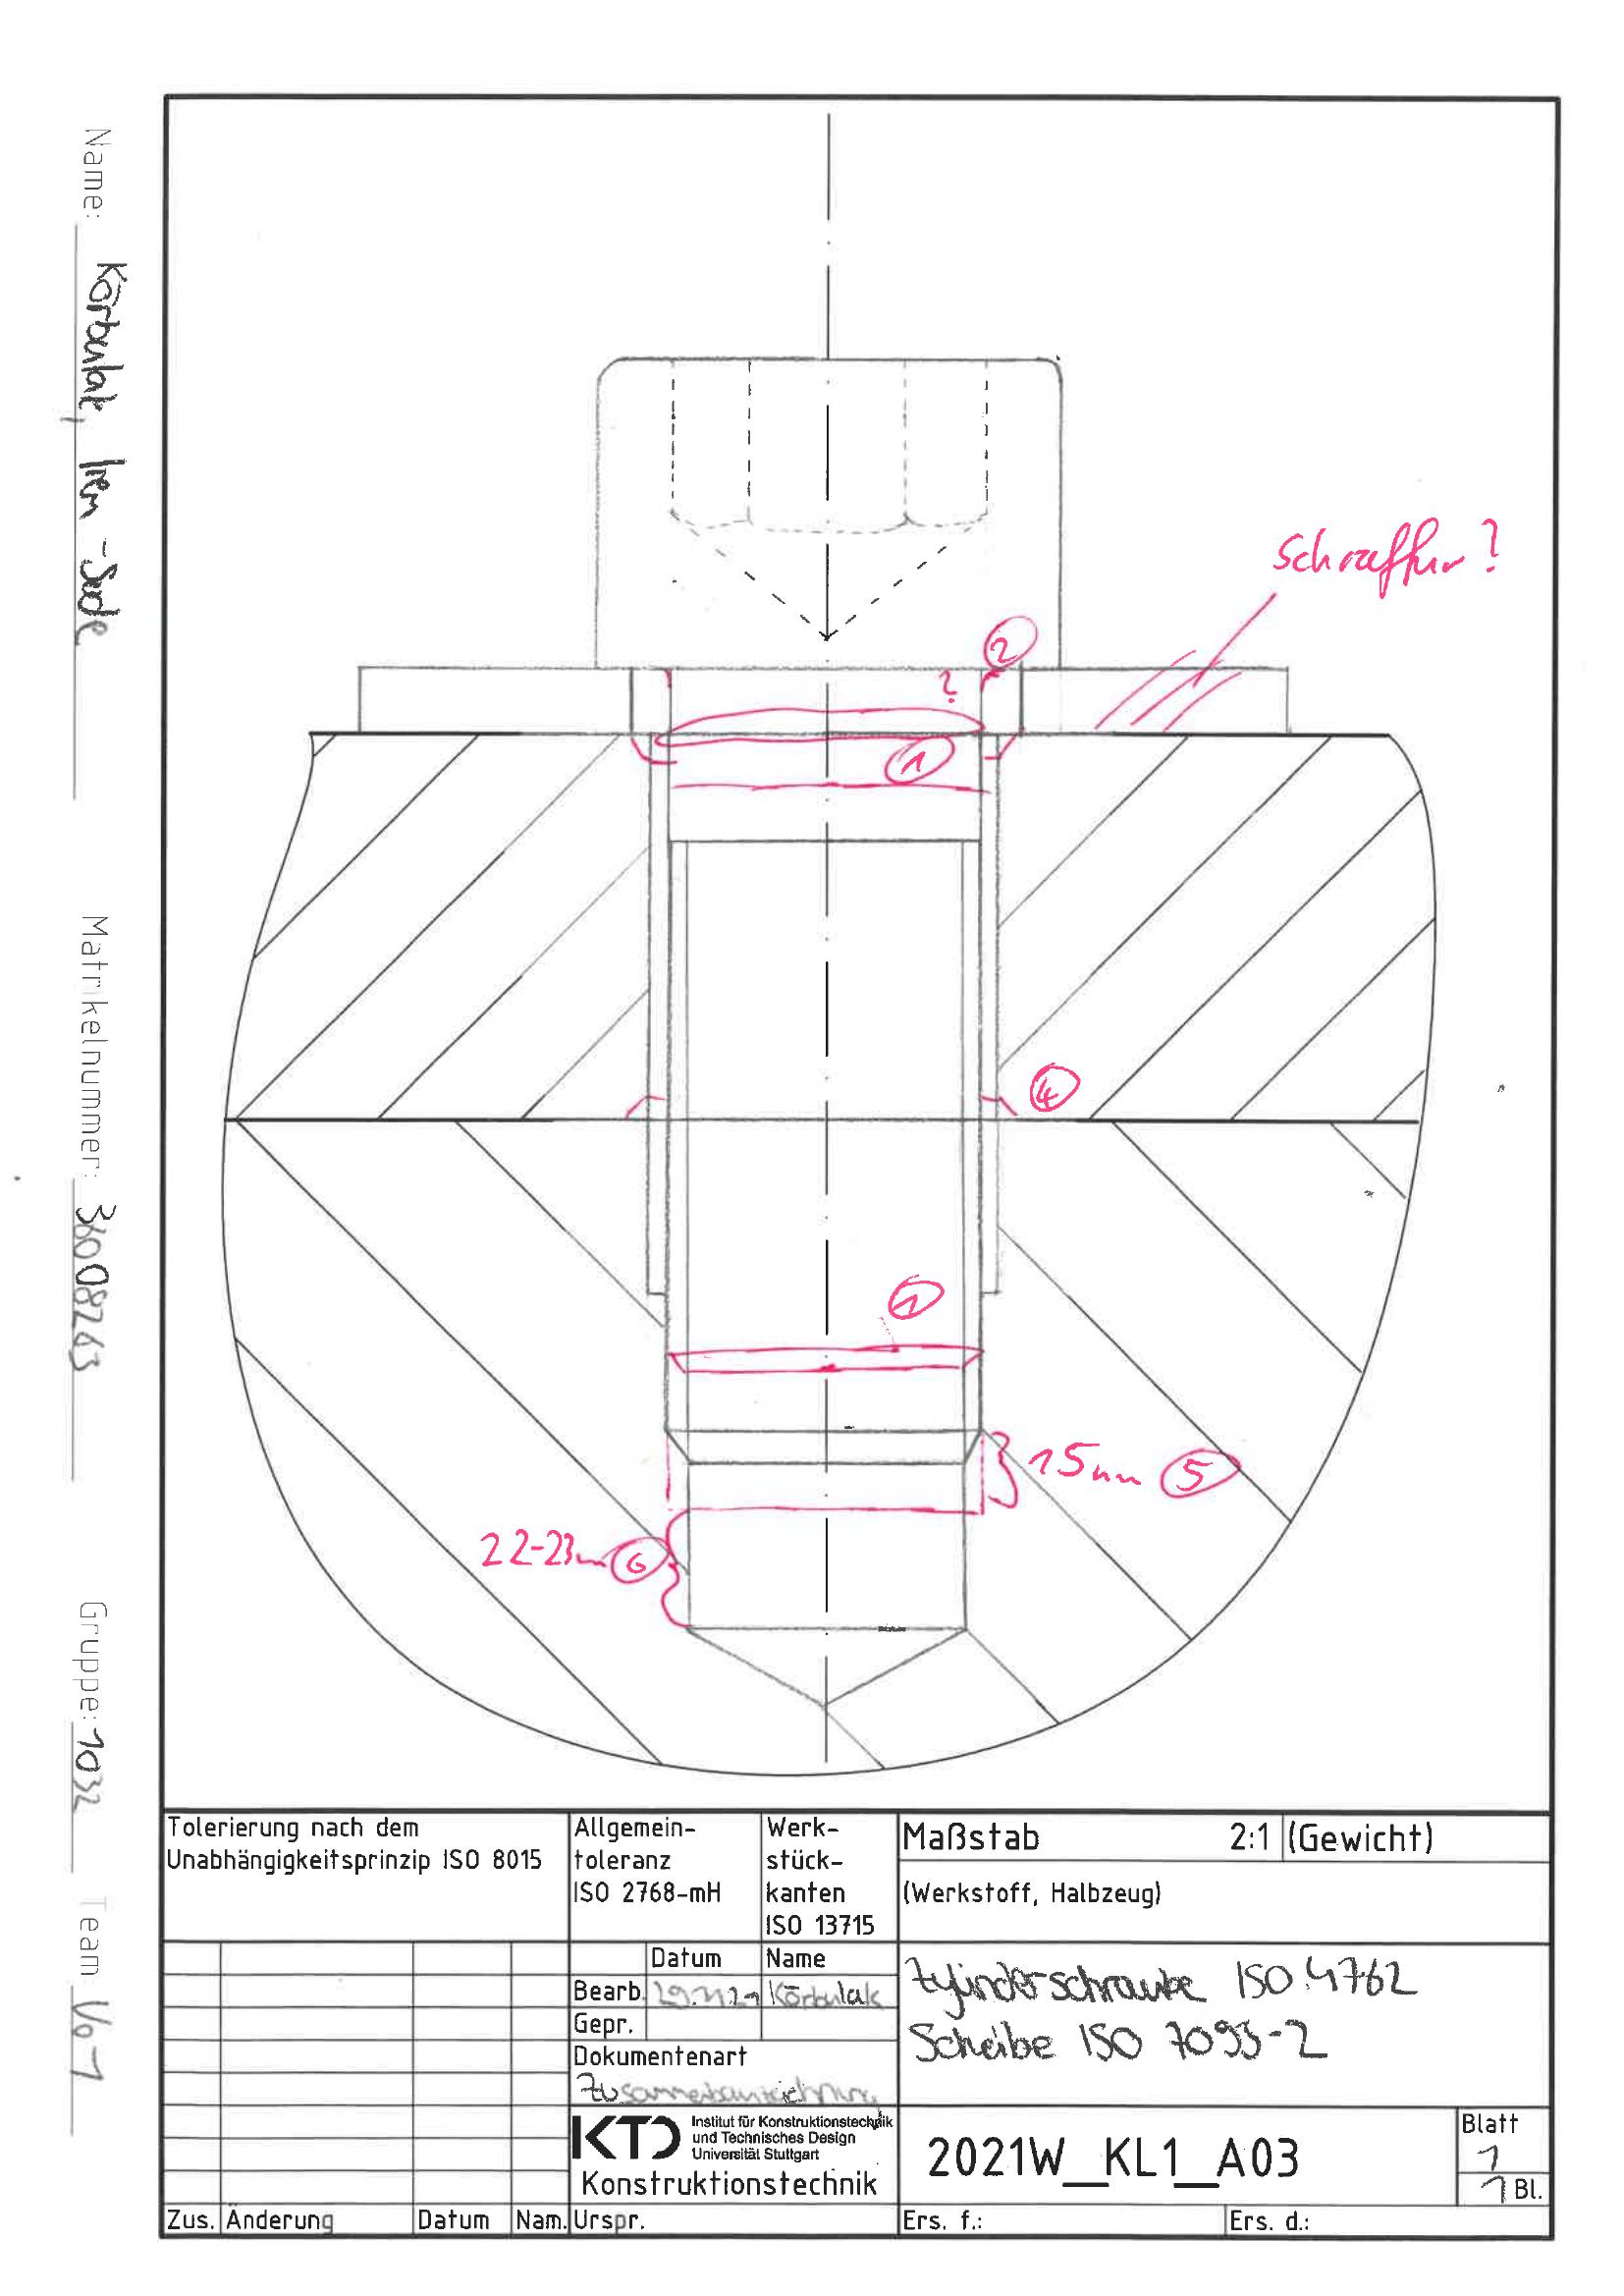 Name: Körbulak, Irem-Sude
Matrikelnummer: 36008263
Gruppe: 1032
Team Vo-1
Schraffur?
2
?
1
4
1
15mm 5
22-23m 6
Tolerierung nach dem
Unabhängigkeitsprinzip ISO 8015
Allgemein-
toleranz
ISO 2768-mH
Werk-
stück-
kanten
ISO 13715
Maßstab 2:1 (Gewicht)
(Werkstoff, Halbzeug)
Datum Name
Bearb. 29.11.21 Körbulak
Gepr.
Dokumentenart
Zusammenbauzeichnung
Zylinderschraube ISO 4762
Scheibe ISO 7093-2
KTD Institut für Konstruktionstechnik
und Technisches Design
Universität Stuttgart
Konstruktionstechnik
2021W_KL1_A03
Blatt
1
1 Bl.
Zus. Änderung Datum Nam. Urspr. Ers. f.: Ers. d.: